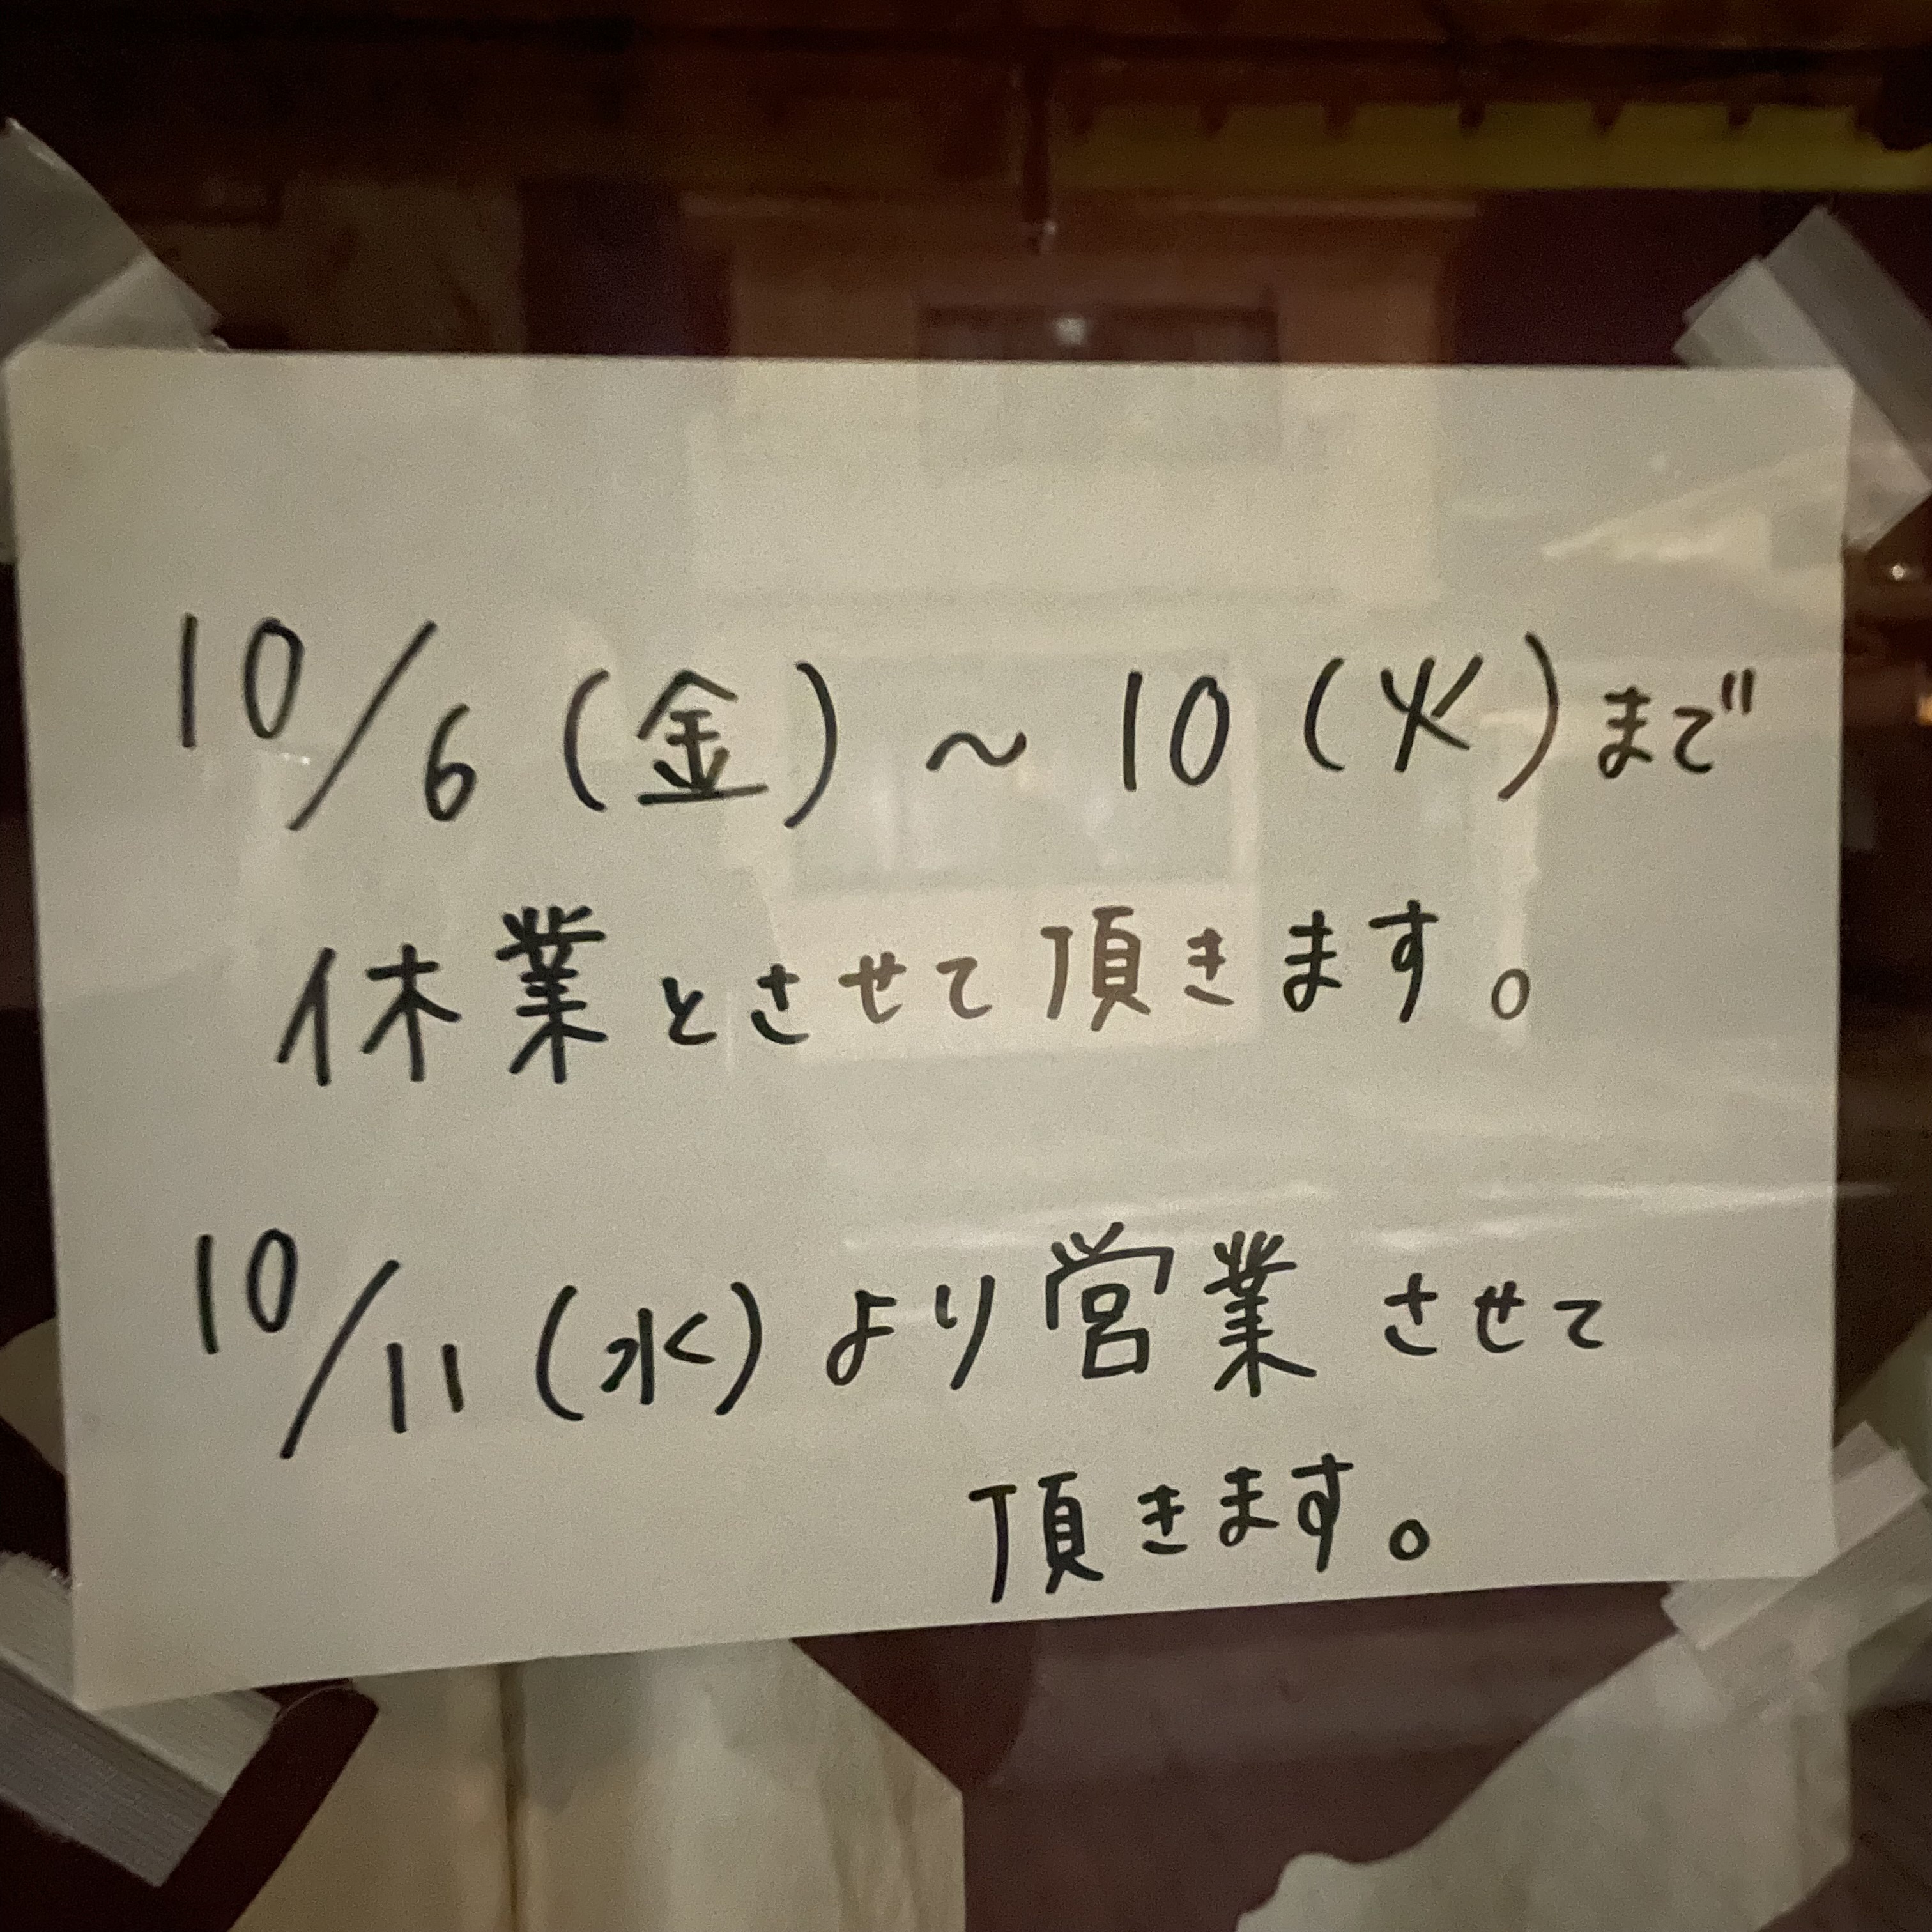 10/6(金)~10(火)まで
休業とさせて頂きます。
10/11(水)より営業させて
頂きます。